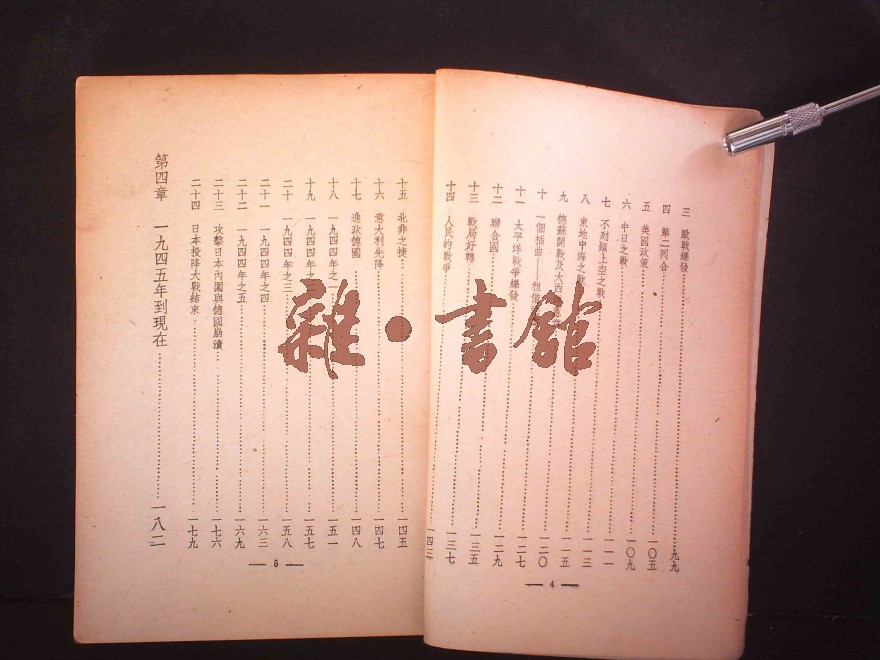 三 歐戰爆發……九九
四 第二回合……一〇五
五 美國政策……一〇九
六 中日之戰……一一一
七 不列顛上空之戰……一一三
八 東地中海之戰……一一五
九 德蘇開戰及大西……一二〇
十 一個插曲——租借……一二七
十一 太平洋戰爭爆發……一二九
十二 聯合國……一三五
十三 戰局好轉……一三七
十四 人民的戰爭……一四三
— 4 —
十五 北非之捷……一四五
十六 意大利先降……一四七
十七 進攻德國……一四八
十八 一九四四年之一……一五一
十九 一九四四年之二……一五七
二十 一九四四年之三……一五八
二十一 一九四四年之四……一六三
二十二 一九四四年之五……一六九
二十三 攻擊日本內圍與德國崩潰……一七六
二十四 日本投降大戰結束……一七九
第四章 一九四五年到現在……一八二
— 5 —
雜·書館